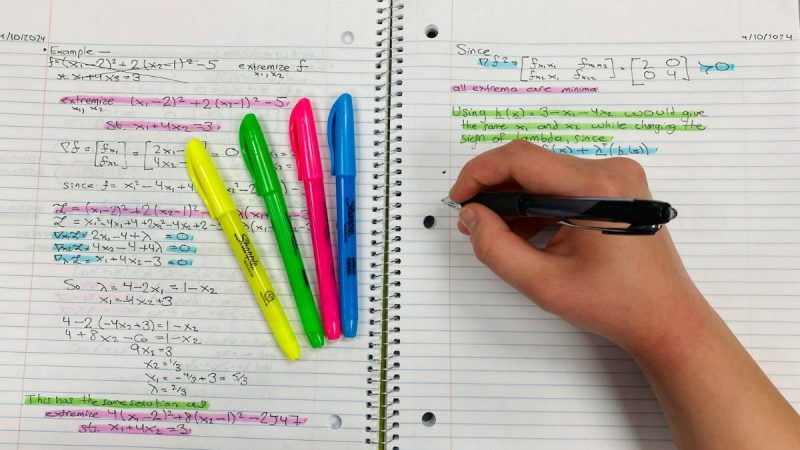 4/10/2024
• Example —
f=(x₁-2)²+2(x₂-1)²-5 extremize f
x₁,x₂
st. x₁+4x₂=3
extremize (x₁-2)²+2(x₂-1)²-5
x₁,x₂
st. x₁+4x₂=3
∇f = [fx₁ fx₂] = [2x₁- 4x₂] = 0
since f= x₁²-4x₁+4
ℒ = (x₁-2)²+2(x₂-1)²
ℒ = x₁²-4x₁+4+2x₂²-4x₂+2
∇x₁ℒ = 2x₁-4+λ = 0
∇x₂ℒ = 4x₂-4+4λ = 0
∇λℒ = x₁+4x₂-3 = 0
So λ=4-2x₁=1-x₂
x₁=-4x₂+3
4-2(-4x₂+3)=1-x₂
4+8x₂-6=1-x₂
9x₂=3
x₂=1/3
x₁=-4/3+3=5/3
λ=2/3
This has the same solution as
extremize 4(x₁-2)²+8(x₂-1)²-2547
st. x₁+4x₂=3
Sharpie
Sharpie
4/10/2024
Since
∇f² = [fx₁x₁ fx₁x₂ fx₂x₁ fx₂x₂] = [2 0 0 4] >0
all extrema are minima
Using h(x)=3-x₁-4x₂ would give
the same x₁ and x₂ while changing the
sign of lambda, since
f(x)+λᵀ(h(x))